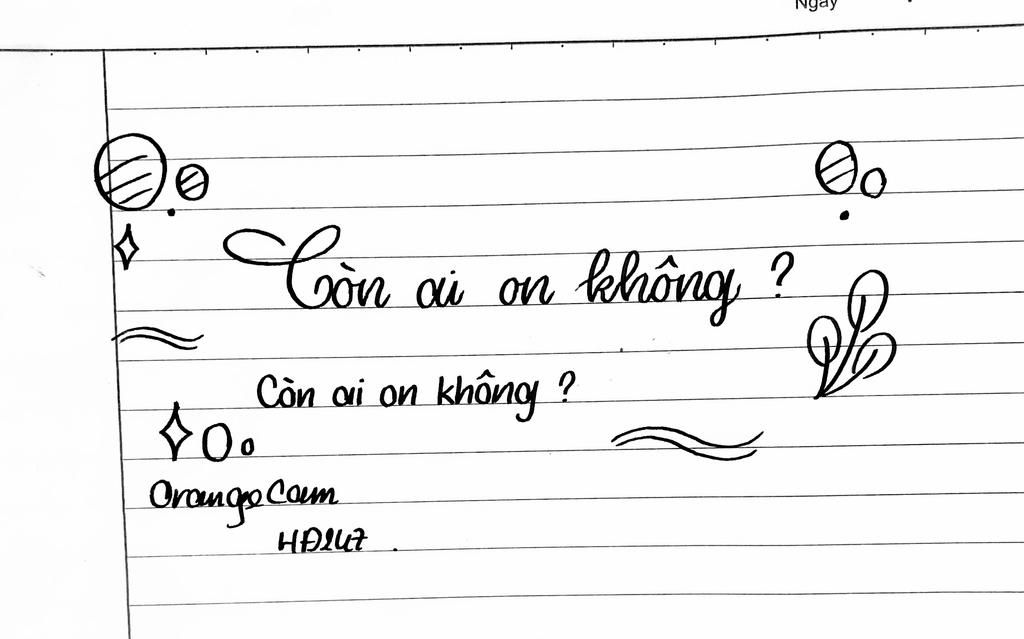 Ngày
Còn ai on không ?
Còn ai on không ?
OrangeCam
HĐ247 .